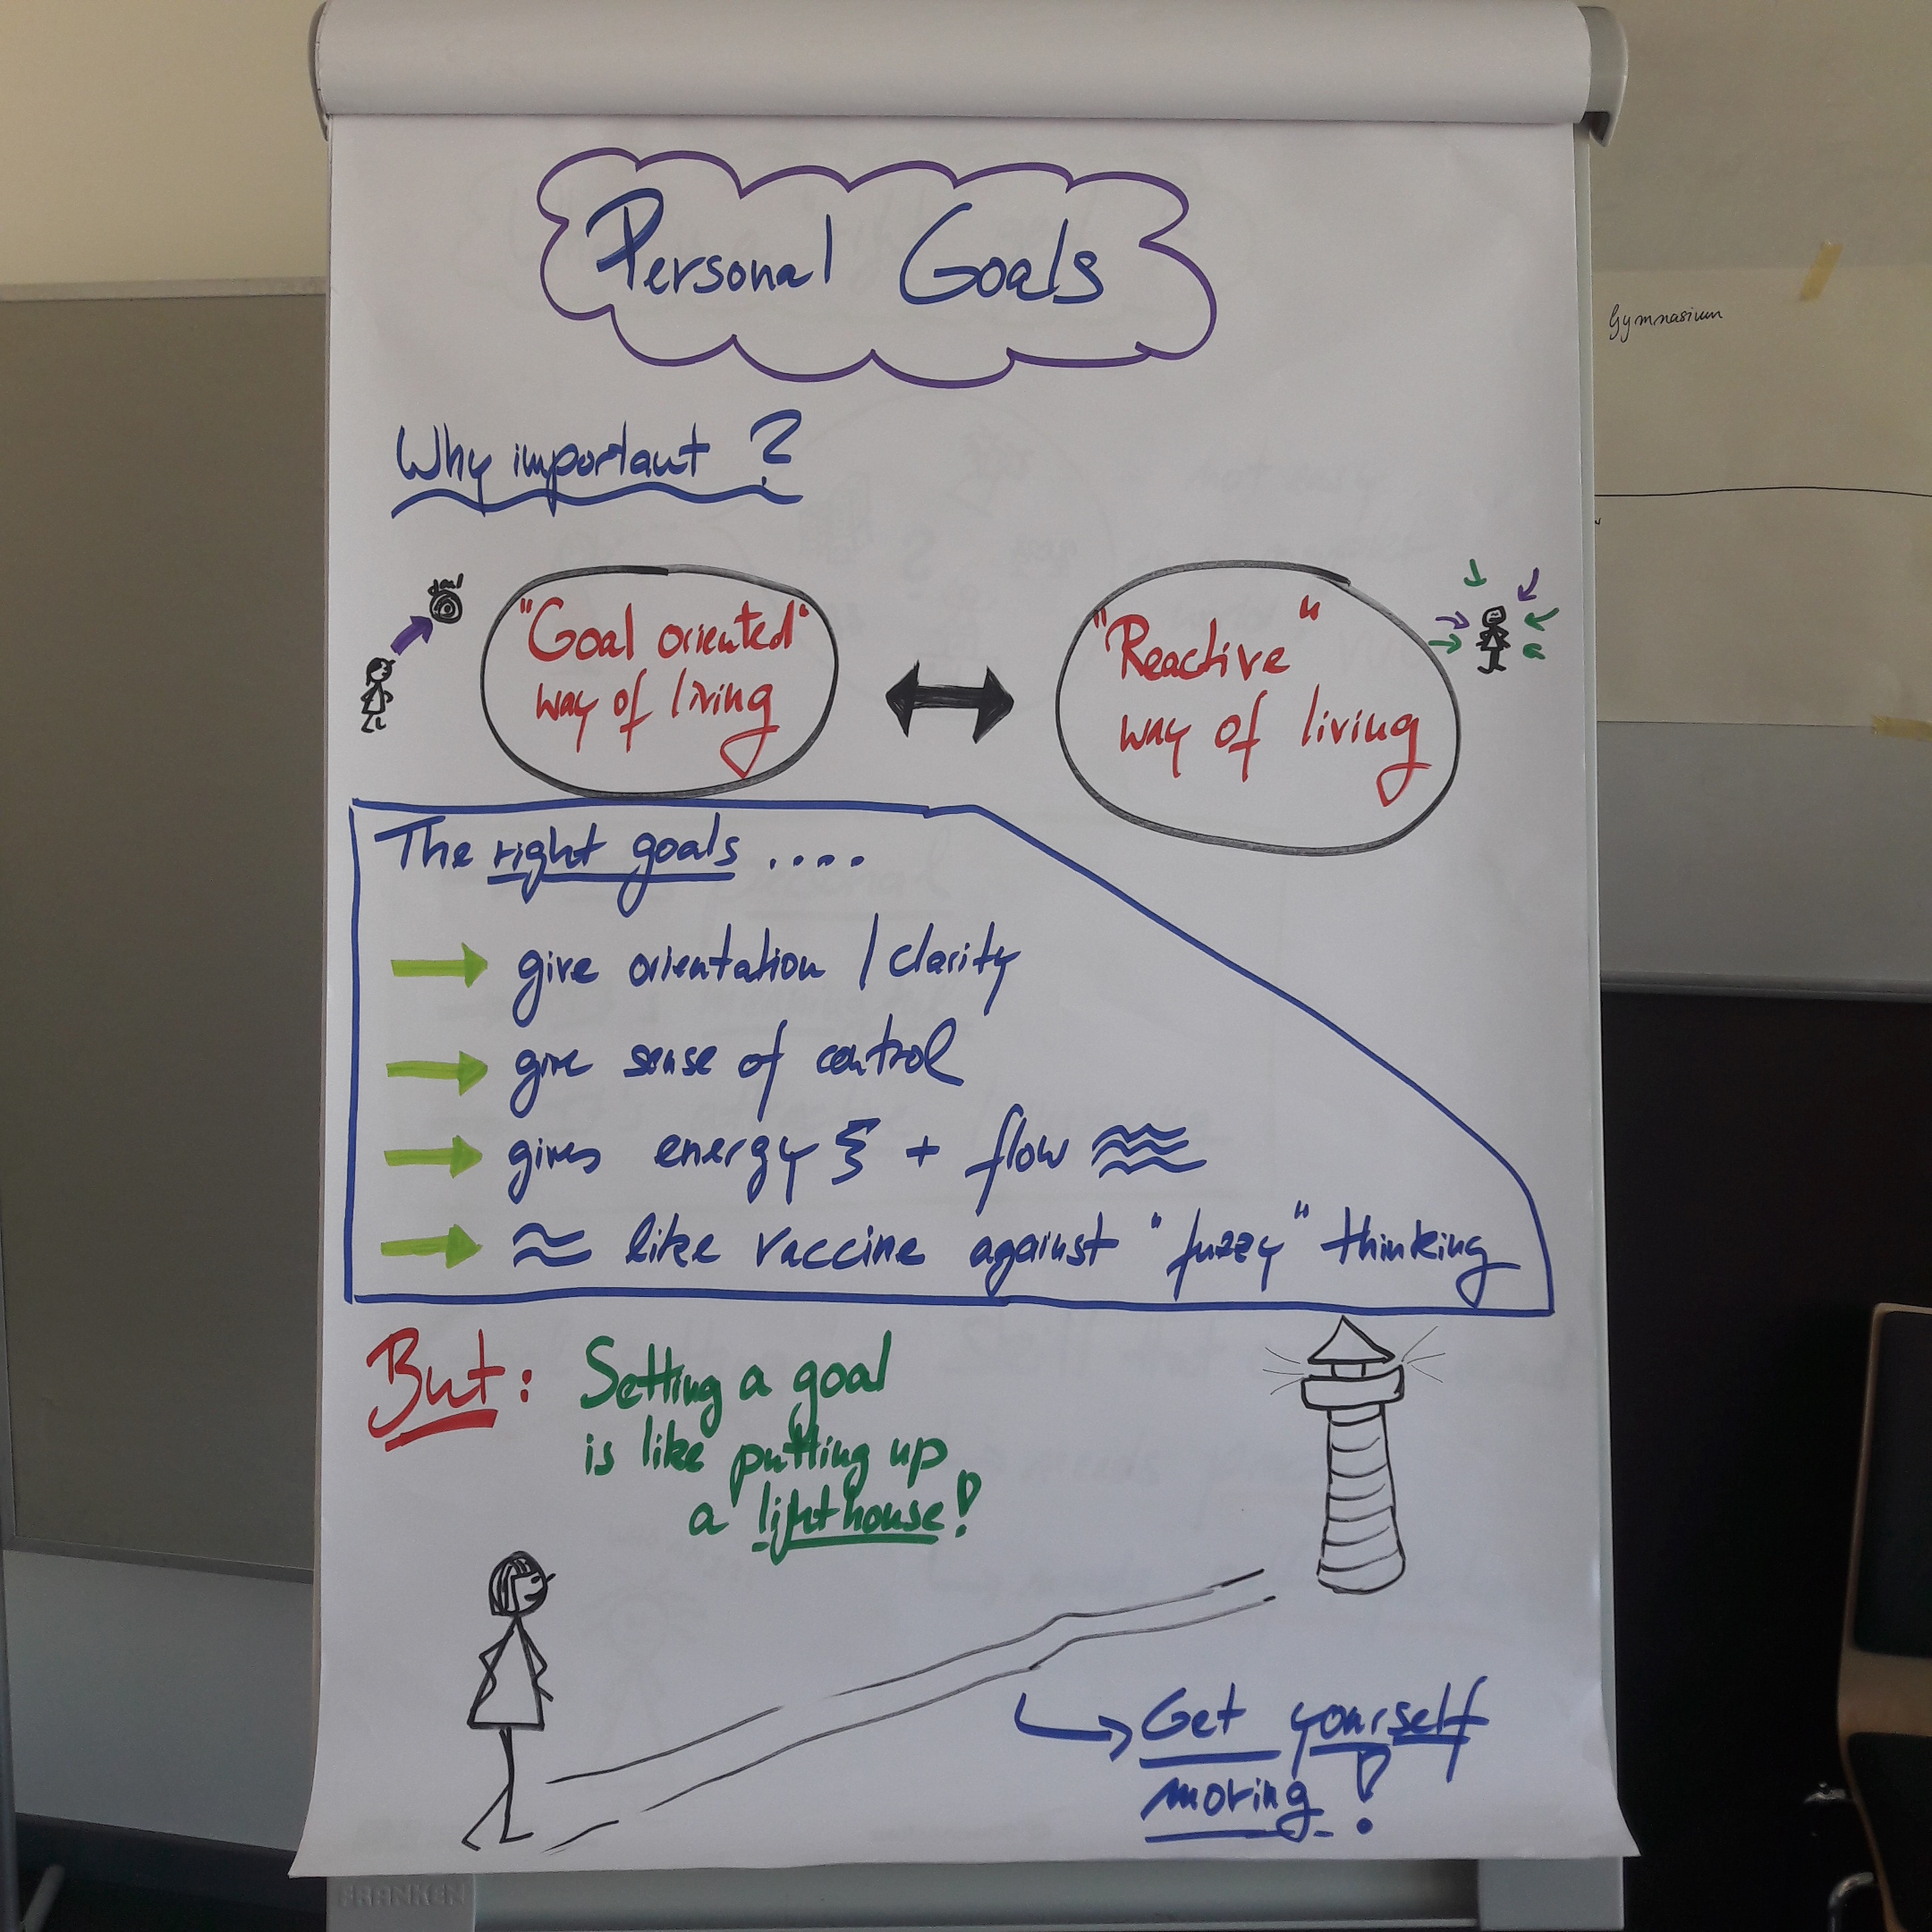 Personal Goals
Gymnasium
Why important ?
goal
"Goal oriented"
way of living
"Reactive"
way of living
The right goals ....
give orientation / clarity
give sense of control
gives energy + flow
≈ like vaccine against "fuzzy" thinking
But: Setting a goal
is like putting up
a lighthouse!
Get yourself
moving!
FRANKEN